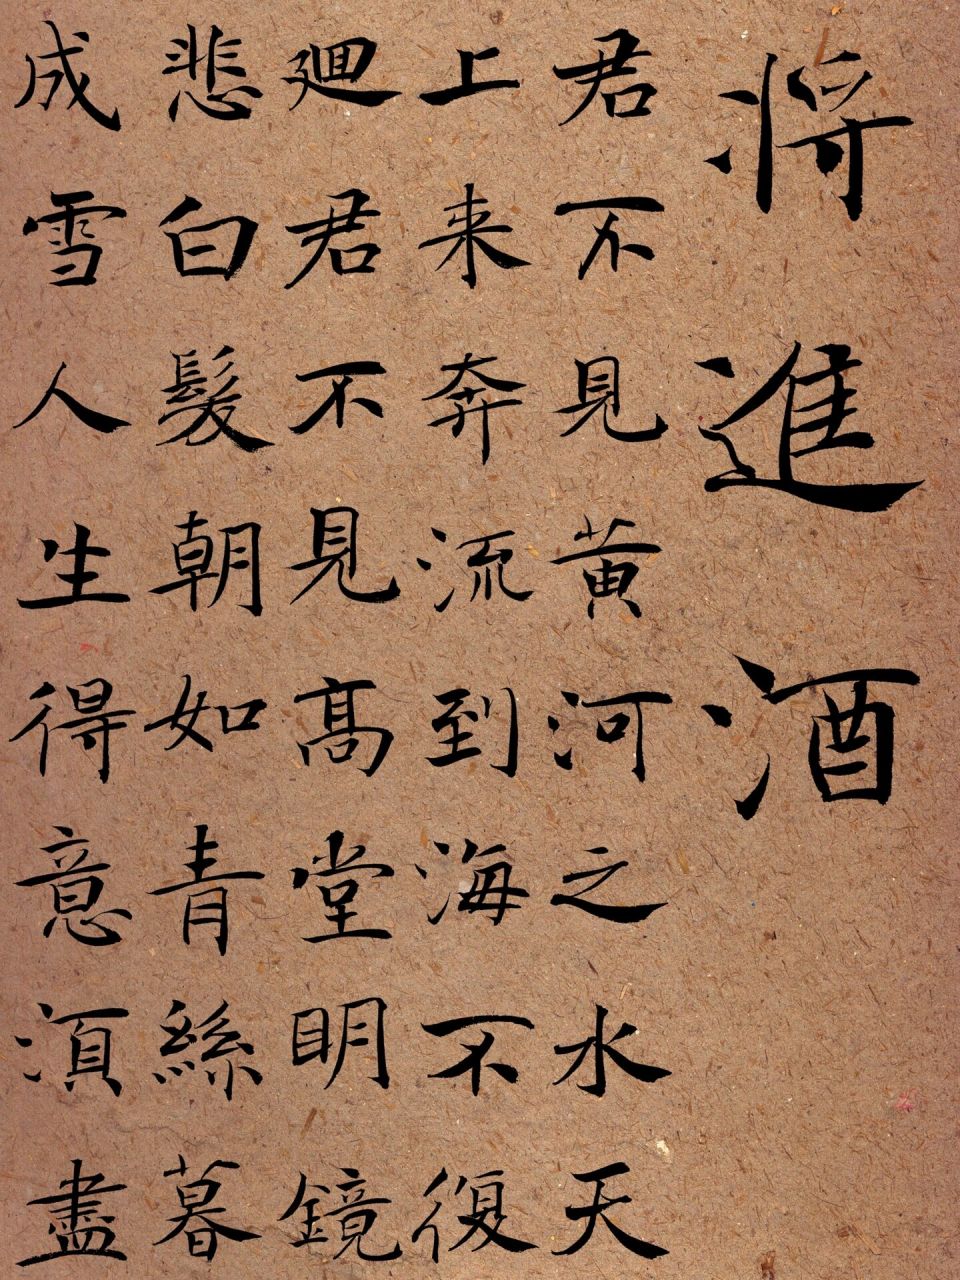 將進酒
君不見黃河之水天
上来奔流到海不復
廻君不見髙堂明鏡
悲白髮朝如青絲暮
成雪人生得意湏盡